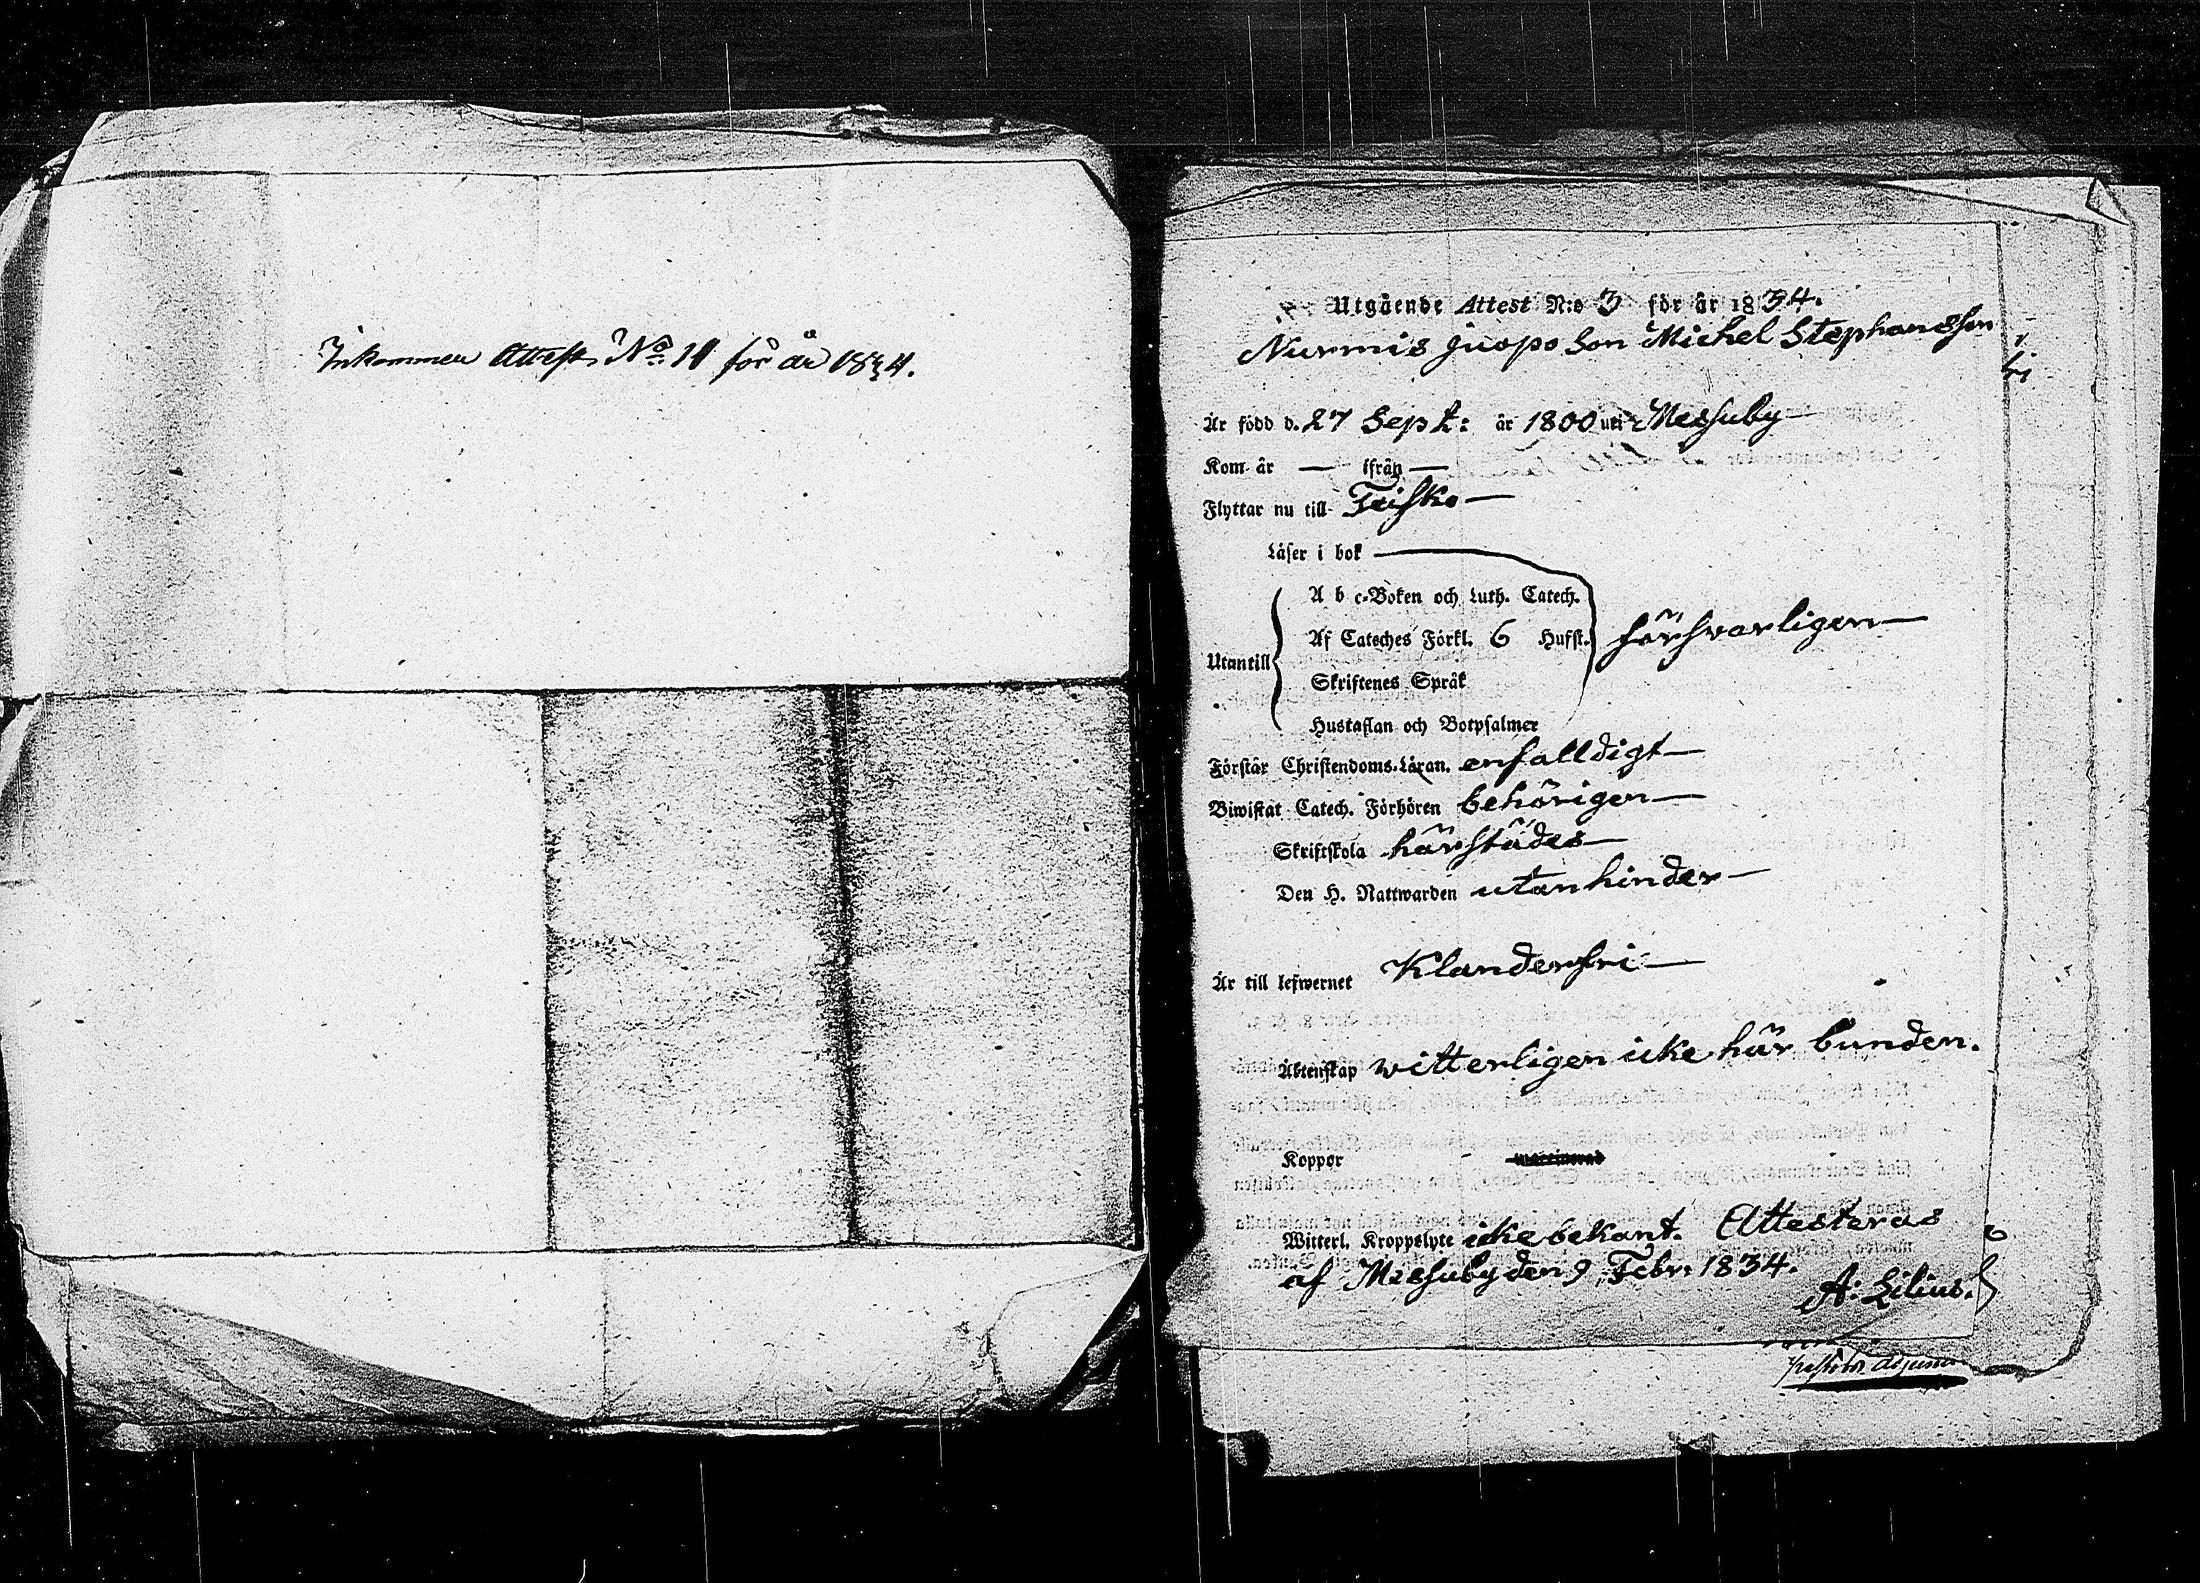 Inkommen Attest No 11 för år 1834.
Utgående Attest N:o 3 för år 1834.
Nurmis juopo Son Michel Stephansson
Är född d. 27 Sept: år 1800 uti Messuby
Kom år — ifrån —
Flyttar nu till Teisko —
Läser i bok
A b c-Boken och Luth. Catech.
Af Cateches Förkl. 6 Hufst. försvarligen —
Utantill
Skriftenes Språk
Hustaflan och Botpsalmer
Förstår Christendoms-Läran. enfalldigt —
Biwistat Catech. Förhören behörigen —
Skriftskola härstädes —
Den H. Nattwarden utan hinder —
Är till lefwernet Klanderfri —
Äktenskap witterligen icke här bunden.
Koppor
Witterl. Kroppslyte icke bekant. Attesteras
af Messuby den 9 Febr: 1834.
A: Lilius.